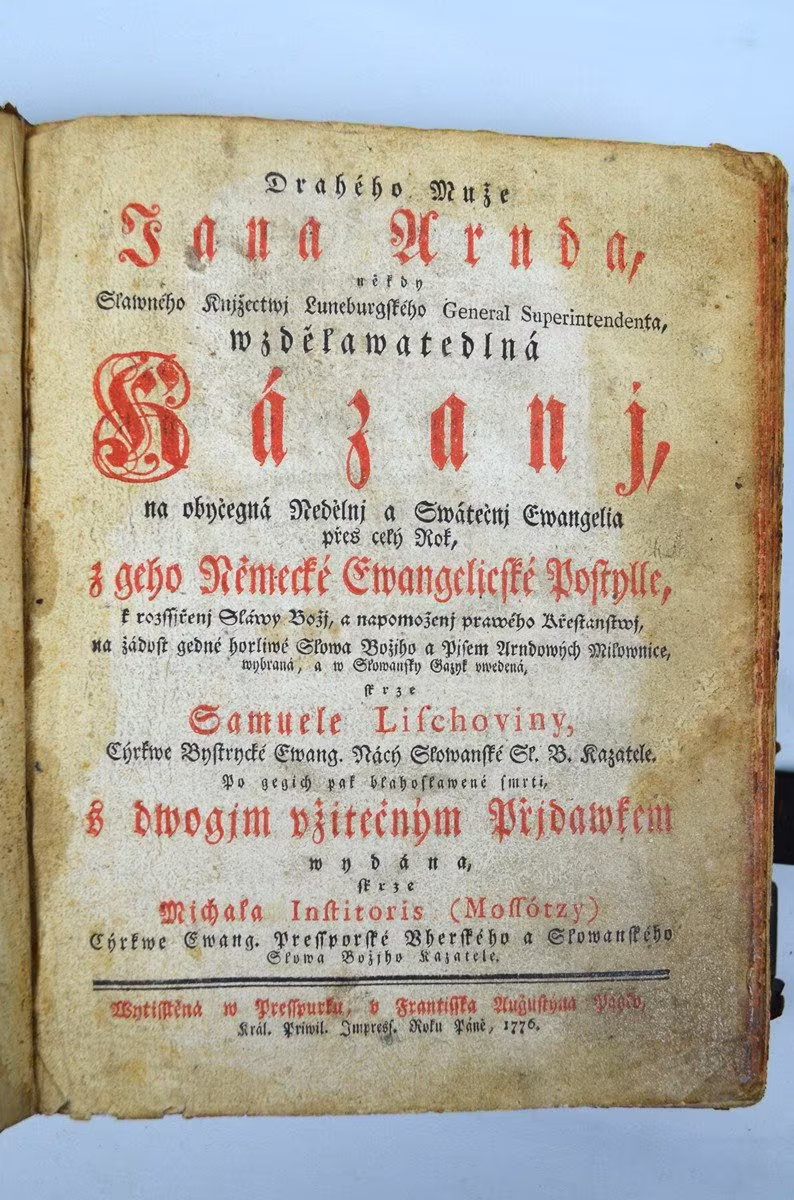 Drahého Muže
Jana Arnda,
někdy
Sławného Knjžectwj Luneburgſkého General Superintendenta,
wzděławatedlná
Kázanj,
na obyčegná Nedělnj a Swátečnj Ewangelia
přes celý Rok,
z geho Německé Ewangelicſké Poſtylle,
k rozſſjřenj Sláwy Božj, a napomoženj prawého Křeſťanſtwj,
na žádoſt gedné horliwé Słowa Božjho a Piſem Arndowých Miłownice,
wybraná, a w Słowanſký Gazyk vwedená,
ſkrze
Samuele Liſchoviny,
Cýrkwe Byſtrycké Ewang. Nácý Słowanſké Sł. B. Kazatele.
Po gegich pak błahoſławené ſmrti,
s dwogjm vžitečným Přjdawkem
wydána,
ſkrze
Michała Inſtitoris (Moſſótzy)
Cýrkwe Ewang. Preſſporſké Vherſkého a Słowanſkého
Słowa Božjho Kazatele.
Wytiſſtěná w Preſſpurku, v Frantiſſka Auguſtýna
Král. Priwil. Impreſſ. Roku Páně, 1776.